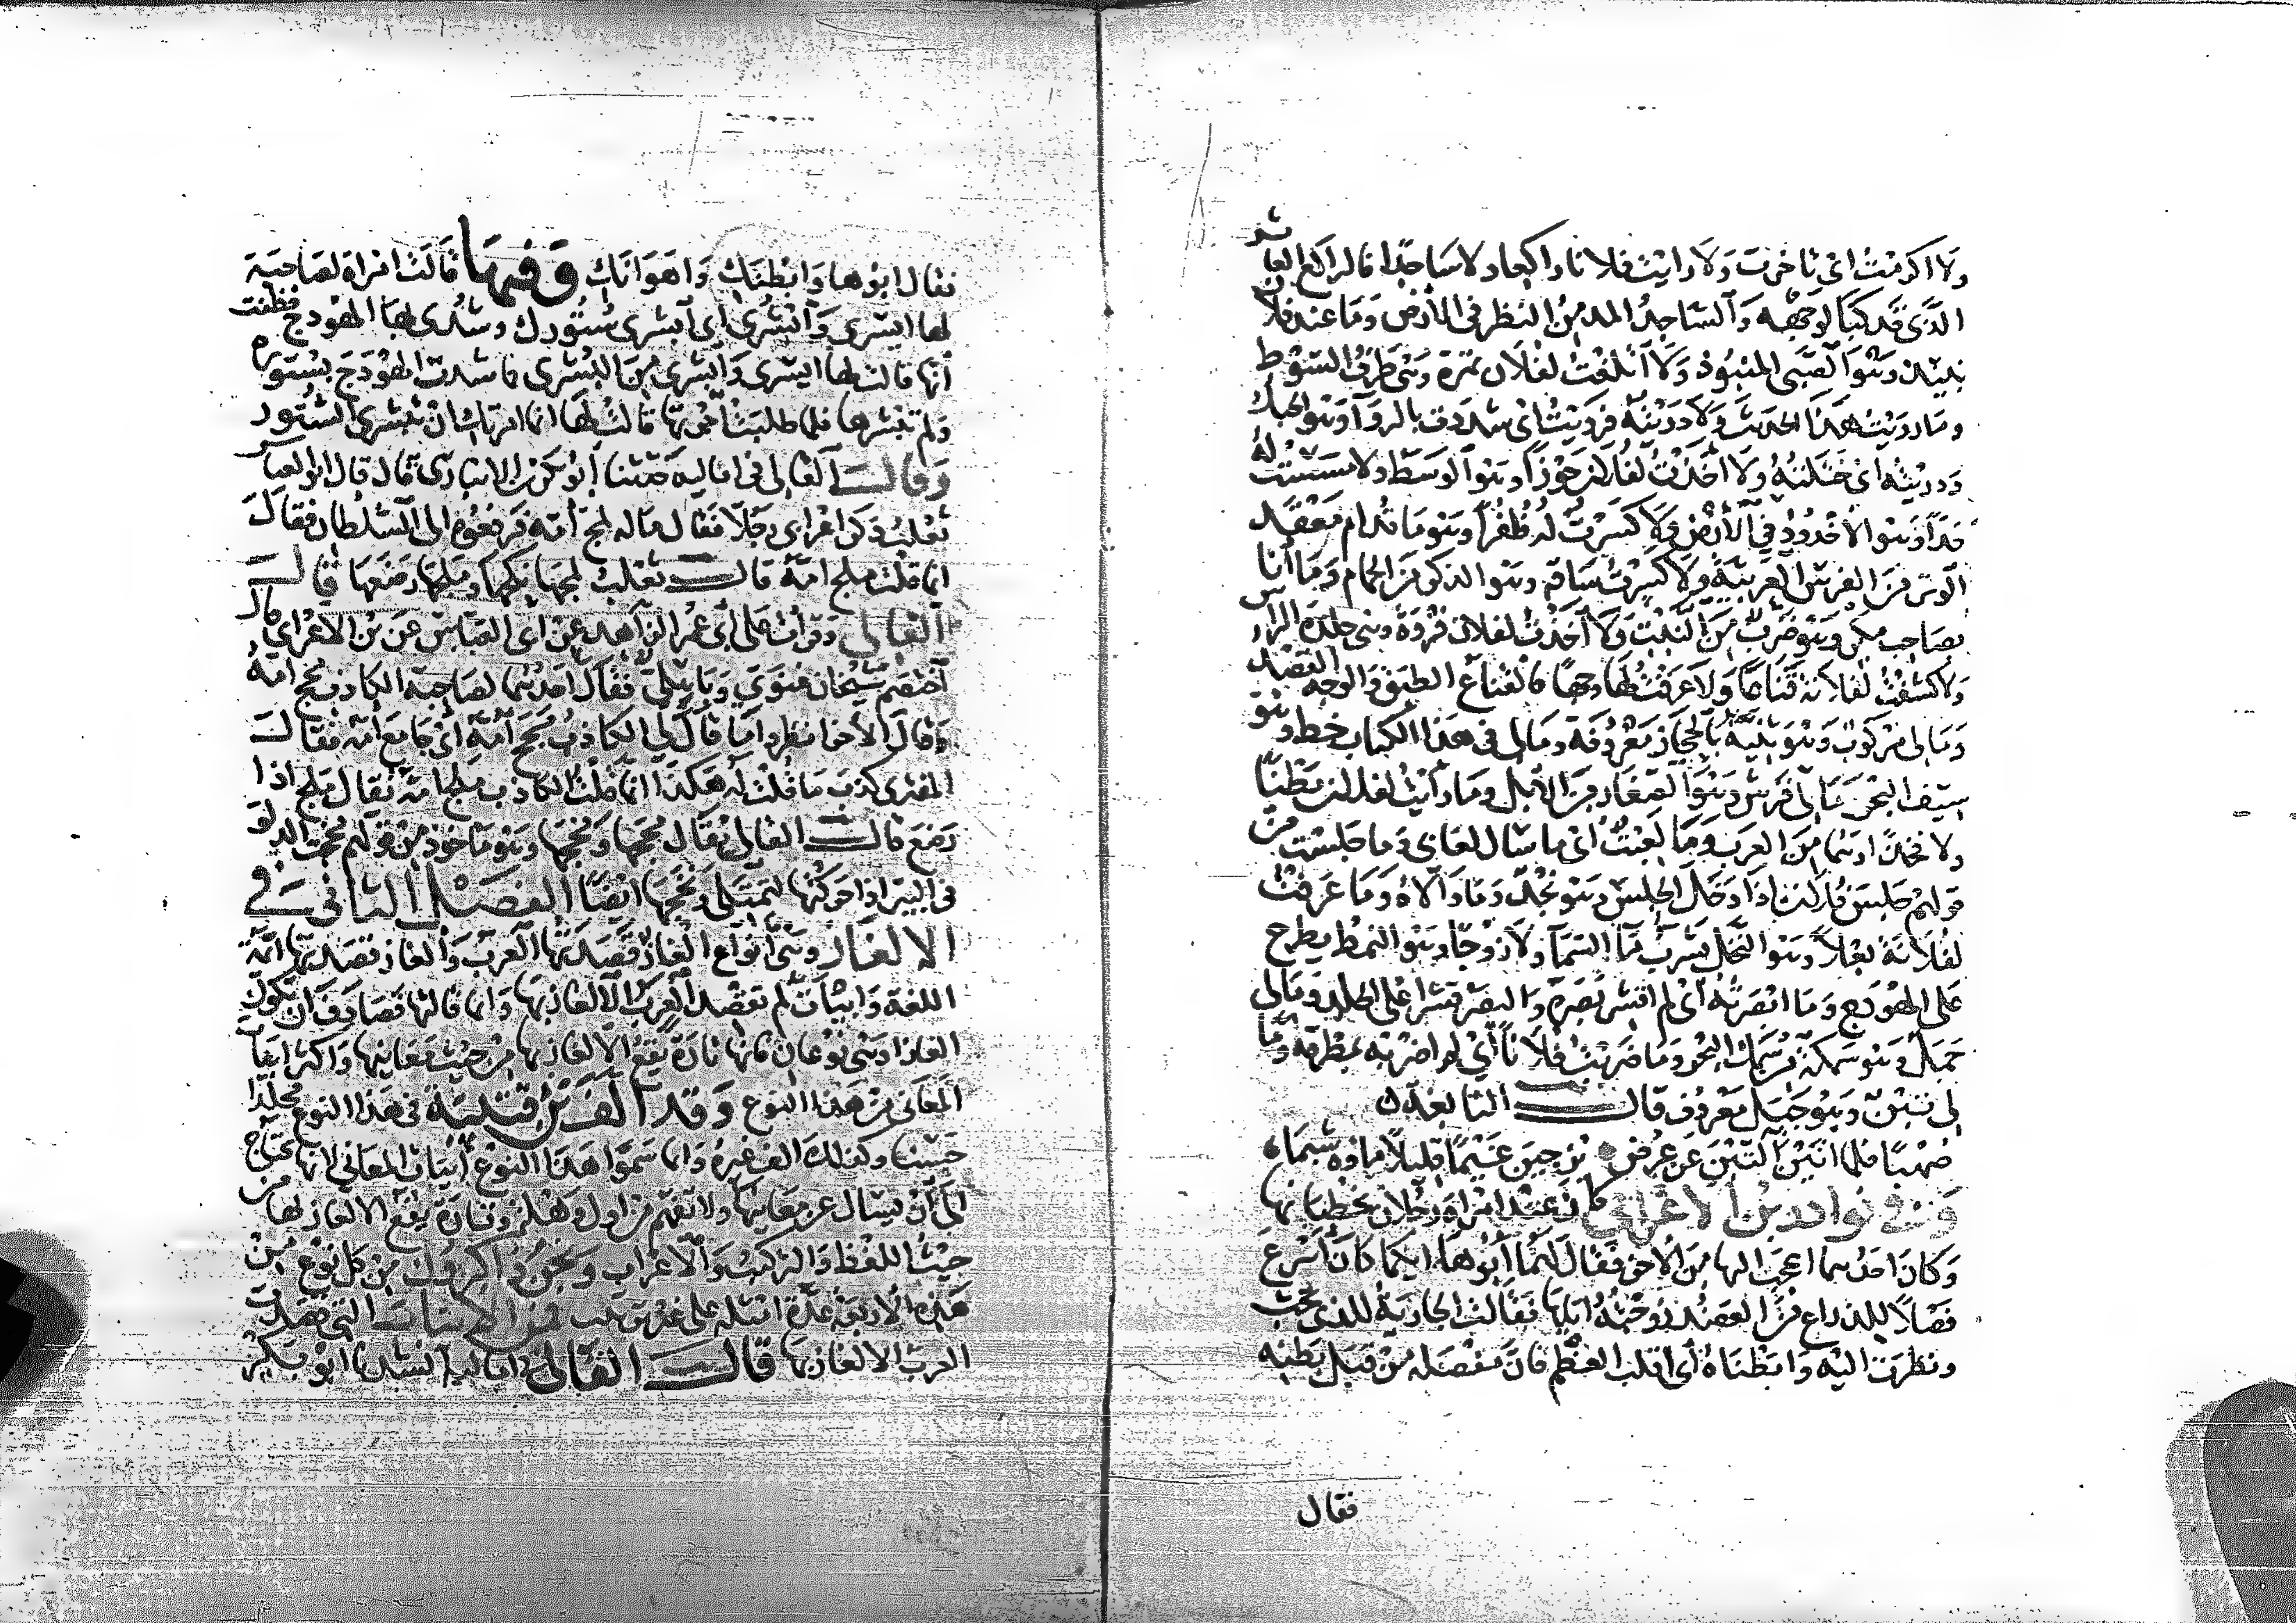 ولا اكرمت اي تاخرت ولا رايت فلانا راكعا ولا ساجدا فالراكع العاثر
الذي قد كبا لوجهه والساجد المدمن النظر في الارض وما عند فلان
نبيذ وهو الصبي المنبوذ ولا اتلفت لفلان ثمرة وهي طرف السوط
وما رويت هذا الحديث ولا دريته فرويت اي شددت بالروا وهو الحبل
ودريته اي ختلته ولا اخذت لفلان جوزا وهو الوسط ولا شققت له
خدا وهو الاخدود في الارض ولا كسرت له ظفرا وهو ما قدام معقد
الوتر من القوس العربية ولا كسرت ساقه وهو الذكر من الحمام وما انا
بصاحب مكر وهو ضرب من النبت ولا اخذت لفلان فروة وهي جلدة الراس
ولا كشفت لفلانة قناعا ولا عرفت لها وجها فالقناع الطبق والوجه القصد
وما لي مركوب وهو ثنية بالحجاز معروفة وما لي في هذا الكتاب خط وهو
سيف البحر وما لي فرش وهو الصغار من الابل وما رايت لفلان بطنا
ولا فخذا وهما من العرب وما لعبت اي ما سال لعابي وما جلست من
قولهم جلس فلان اذا دخل الجلس وهو نجد وما والاه وما عرفت
لفلانة بعلا وهو النخل يشرب ما السما ولا زوجا وهو النمط يطرح
على الهودج وما ابصرته اي لم اقشر بصره والبصر قشر اعلى الجلد وما لي
جمل وهو سمكة من سمك البحر وما ضربت فلانا اي لم اضربه بمطرقة وما
لي تنين وهو جبل معروف قال النابغة
صهبا فلما اتين التين عن عرض يزجين غيما قليلا ماؤه شبما
وفي نوادر بن الاعرابي كان عند امراة رجلان يخطبانها
وكان احدهما اعجب اليها من الاخر فقال لهما ابوها ايكما كان اسرع
فصلا للذراع من العضد زوجته اياها فقالت الجارية للذي تحب
ونظرت اليه وابطناه اي اقلب العظم فان مفصله من قبل بطنه
فقال
فقال ابوها وابطنك واهوانك وفيها قالت امراة لصاحبة
لها ايسري وابشري اي ابشري بستورك وشدي لها الهودج فظنت
انها قالت لها ايسري وابشري من البشرى فاشدت الهودج بستوره
ولم تبشرها فلما طلبت اجرتها قالت لها انما امرتك ان تبشري الستور
وقال القالي في اماليه حدثنا ابو بكر بن الانباري قال قال ابو العباس
ثعلب ذكر اعرابي رجلا فقال ماله لمج امه فرفعوه الى السلطان فقال
انما قلت ملج امه قال ثعلب لمجها نكحها وملجها رضعها قال
القالي وقرات على ابي عمر الزاهد عن ابي العباس عن بن الاعرابي قال
اختصم شيخان غنوي وباهلي فقال احدهما لصاحبه الكاذب محج امه
وقال الاخر انظروا ما قال لي الكاذب محج امه اي جامع امه فقال
المفتري كذب ما قلت له هكذا انما قلت الكاذب ملج امه يقال ملج اذا
رضع قال القالي يقال محجها ونخجها وهو ماخوذ من قولهم نخجت الدلو
في البير اذا حركتها لتمتلي ونخجها ايضا الفصل الثاني في
الالغاز وهي انواع الغاز قصدتها العرب والغاز قصدتها ائمة
اللغة وابيات لم تقصد العرب الالغاز بها وانما قالتها فصادف ان تكون
الغازا وهي نوعان فانها تارة يقع الالغاز بها من حيث معانيها واكثر ابيات
المعاني من هذا النوع وقد الف بن قتيبة في هذا النوع مجلدا
حسنا وكذلك الف غيره وانما سموا هذا النوع ابيات المعاني لانها تحتاج
الى ان يسال عن معانيها ولا تفهم من اول وهلة وتارة يقع الالغاز بها من
حيث اللفظ والتركيب والاعراب ونحن ذاكرون من كل نوع من
هذه الاربعة عدة امثلة على غير ترتيب فمن الابيات التي قصدت
العرب الالغاز بها قال القالي في اماليه انشدنا ابو بكر